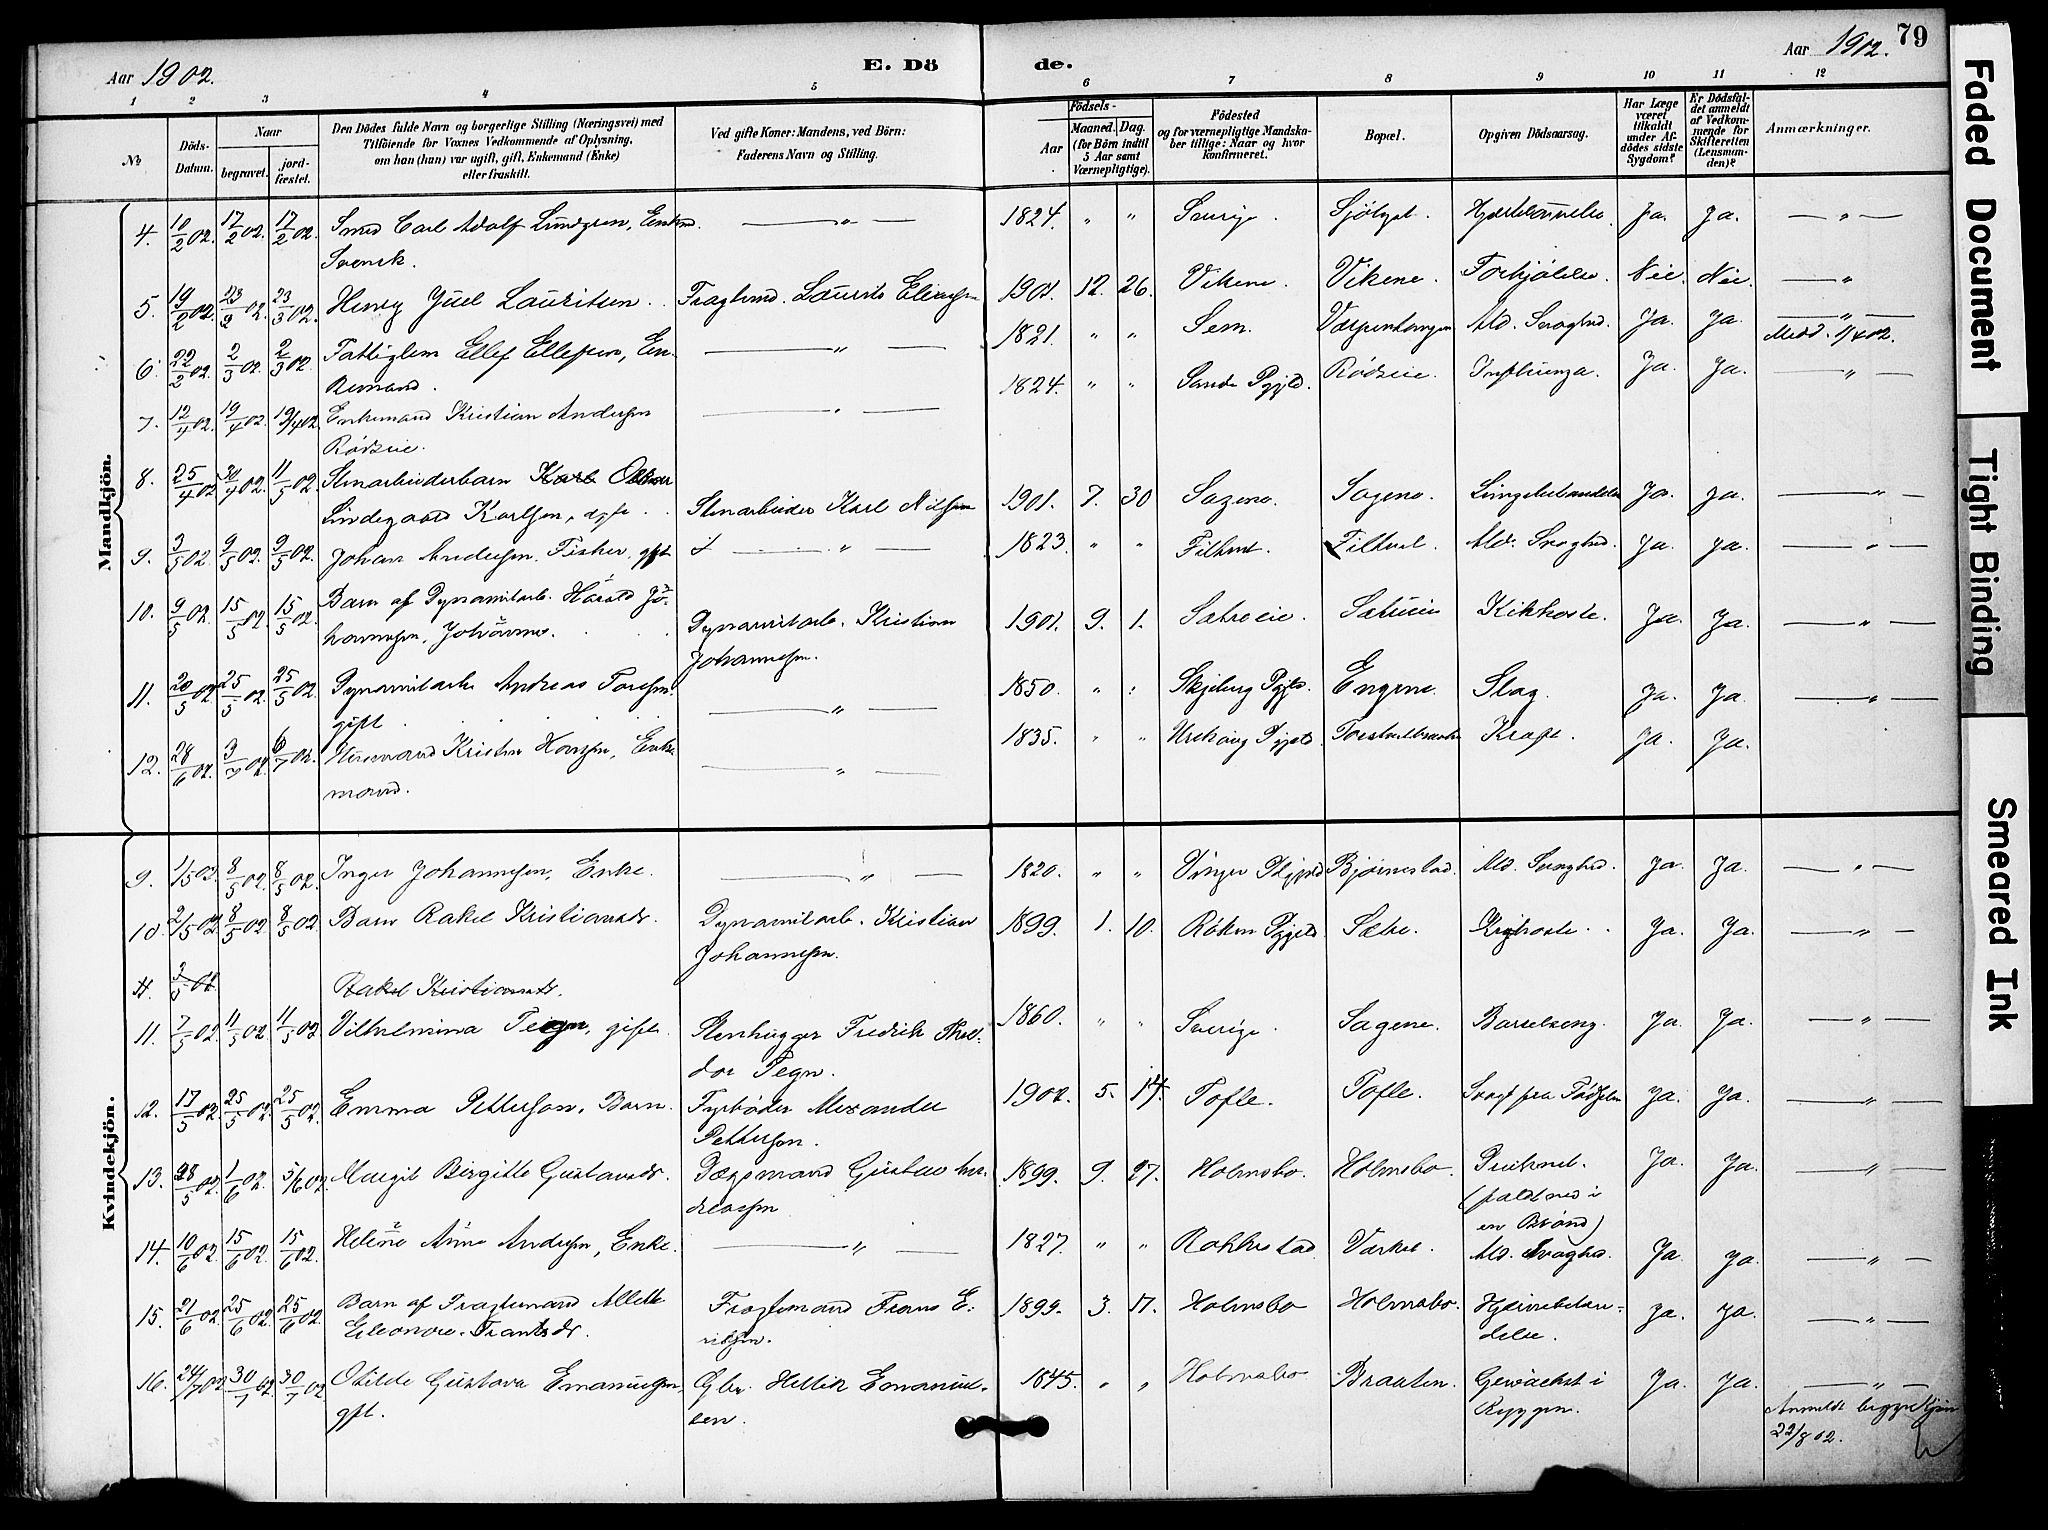 Aar 1902.
E. Dö
de.
Aar 1902.
79
1 2 3 4 5 6 7 8 9 10 11 12
No
Döds-
Datum.
Naar
begravet.
jord-
fæstet.
Den Dödes fulde Navn og borgerlige Stilling (Næringsvei) med
Tilföiende for Voxnes Vedkommende af Oplysning,
om han (hun) var ugift, gift, Enkemand (Enke)
eller fraskilt.
Ved gifte Koner: Mandens, ved Börn:
Faderens Navn og Stilling.
Födsels-
Aar
Maaned.
Dag.
(for Börn indtil
5 Aar samt
Værnepligtige).
Födested
og for værnepligtige Mandska-
ber tillige: Naar og hvor
konfirmeret.
Bopæl.
Opgiven Dödsaarsag.
Har Læge
været
tilkaldt
under Af-
dödes sidste
Sygdom?
Er Dödsfal-
det anmeldt
af Vedkom-
mende for
Skifteretten
(Lensman-
den)?
Anmærkninger.
Mandkjön.
4. 10/2 02. 17/2 02. 17/2 02. Smed Carl Adolf Lundgren, Enkm. — " — 1824. " " Sverige. Ja. Ja. — " —
Svensk.
5. 19/2 02. 23/02. 23/3 02. Henry Juel Lauritsen. Fragtmd. Laurits 1901. 12. 26. Vikene. Vikene. Nei. Nei. — "
6. 22/2 02. 2/3 02. 2/3 02. Fattiglem Ellef Ellefsen, En- — " — 1821. " " Sem. Ald. Svaghed. Ja. Ja. — " —
kemand.
Medd. 1/4 02.
7. 12/4 02. 19/4 02. 19/4 02. Enkemand Kristian Andersen — " — 1824. " " Sande Pgjld. Rødseie. Influenza. Ja. Ja. — " —
Rødseie.
8. 25/4 02 30/4 02. 11/5 02. Stenarbeiderbarn Karl
Lindegaard Karlsen, ægte. Stenarbeider Karl Nilsen 1901. 7. 30 Sagene. Sagene. Ja. Ja. — " —
9. 3/5 02. 9/5 02. 9/5 02. Johan Andersen Fisker, gift — " — 1823. " " Filtvet. Filtvet. Ald. Svaghed. Ja. Ja. — " —
10. 9/5 02. 15/5 02 15/5 02. Barn af Dynamitarb. Harald Jo-
hannesen, Johannes. Dynamitarb. Kristian 1901. 9. 1. Sætreeie. Sætreeie Kikhoste. Ja. Ja. — " —
Johannesen.
11. 20/5 02. 25/5 02. 25/5 02. Dynamitarb. Andreas — " — 1850. " " Skjeberg Pgjld. Engene. Slag. Ja. Ja. — " —
gift.
12. 28/6 02. 3/7 02. 6/7 02. Husmand Kristen Hansen, Enke — " — 1835. " " Urskoug Pgjld. Kræft. Ja. Ja.
mand.
Kvindekjön.
9. 1/5 02. 8/5 02. 8/5 02. Inger Johannesen, Enke. — " — 1820. " " Vinger Pgjeld Bjørnestad. Ald. Svaghed. Ja. Ja. — " —
10. 2/5 02. 8/5 02. 8/5 02. Barn Rakel Kristiansdr. Dynamitarb. Kristian 1899. 1. 10. Røken Pgjeld. Sætre. Kighoste. Ja. Ja. — " —
Johannesen.
11. 3/5 02 Rakel Kristiansdr.
11. 7/5 02. 11/5 02. 11/5 02. Vilhelmina Tegn, gift. Stenhugger Fredrik Theo- 1860. " " Sverige. Sagene. Barselseng. Ja. Ja. — " —
dor Tegn.
12. 17/5 02. 25/5 02. 25/5 02. Emma Petterson, Barn. Fyrbøder Alexander 1902. 5. 14. Tofte. Tofte. Svagt fra Fødselen Ja. Ja. — " —
Petterson.
13. 28/5 02. 1/6 02. 5/6 02. Margit Birgitte Gustavsdr. Gustav An- 1899. 9. 27. Holmsbo. Holmsbo. Druknet. Ja. Ja. — " —
dreasen
(faldt ned i
en Brønd)
14. 10/6 02. 15/6 02. 15/6 02. Helene Anne Andersen, Enke. — " — 1827. " " Rakkestad Værket. Ald. Svaghed. Ja. Ja. — " —
15. 21/6 02. 25/6 02. 25/6 02. Barn af Fragtemand Alette Fragtemand Frans E- 1899. 3. 17. Holmsbo Holmsbo. Hjernebetæn- Ja. Ja. — " —
Eleonore Frantsdr. riksen. delse.
16. 24/7 02 30/7 02 30/7 02 Otilde Gustava Emanuelsen, Gbr. Hellik Emanuel- 1845. " " Holmsbo Braaten. Gevækst i Ja. Ja. — " —
gift. sen. Ryggen.
Anmeldt begge Kjøn
22/8 02.
Faded Document
Tight Binding
Smeared Ink